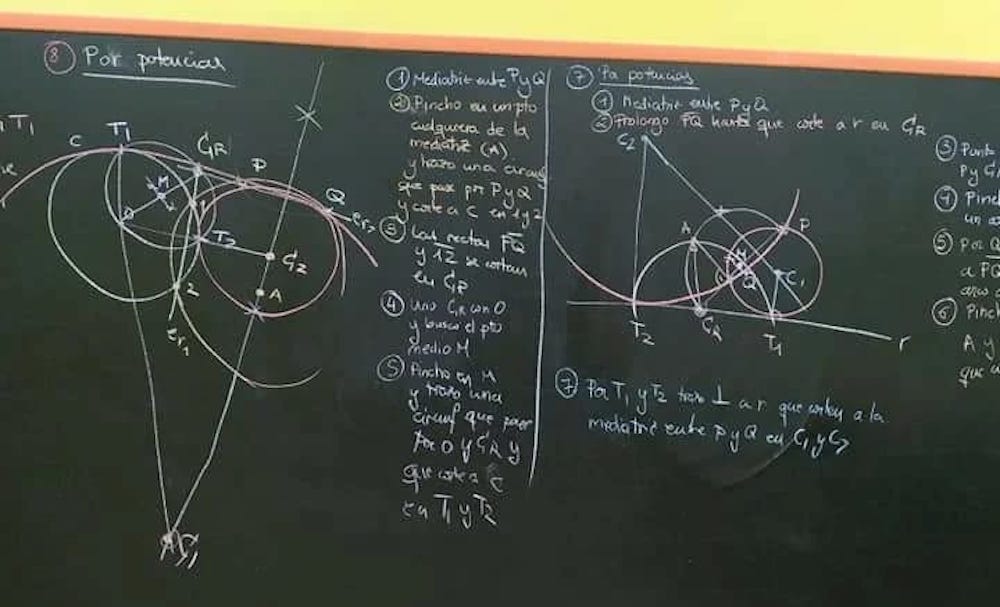 ⑧ Por potencias
T1
C
T1
CR
P
M
Q
er2
1
O
T2
C2
2
A
er1
C1
① Mediatriz entre P y Q
② Pincho en un pto
cualquiera de la
mediatriz (A)
y trazo una circunf
que pase por P y Q
y corte a C en 1 y 2
③ Las rectas PQ
y 12 se cortan
en CR
④ Uno CR con O
y busco el pto
medio M
⑤ Pincho en M
y trazo una
circunf que pase
por O y CR y
que corte a C
en T1 y T2
⑦ Por potencias
① Mediatriz entre P y Q
② Prolongo PQ hasta que corte a r en CR
C2
A
P
M
Q
C1
T2
CR
T1
r
⑦ Por T1 y T2 trazo ⊥ a r que corten a la
mediatriz entre P y Q en C1 y C2
③ Punto
P y
④
un
⑤ Por Q
a PQ
arco
⑥ Pincho
A y
que